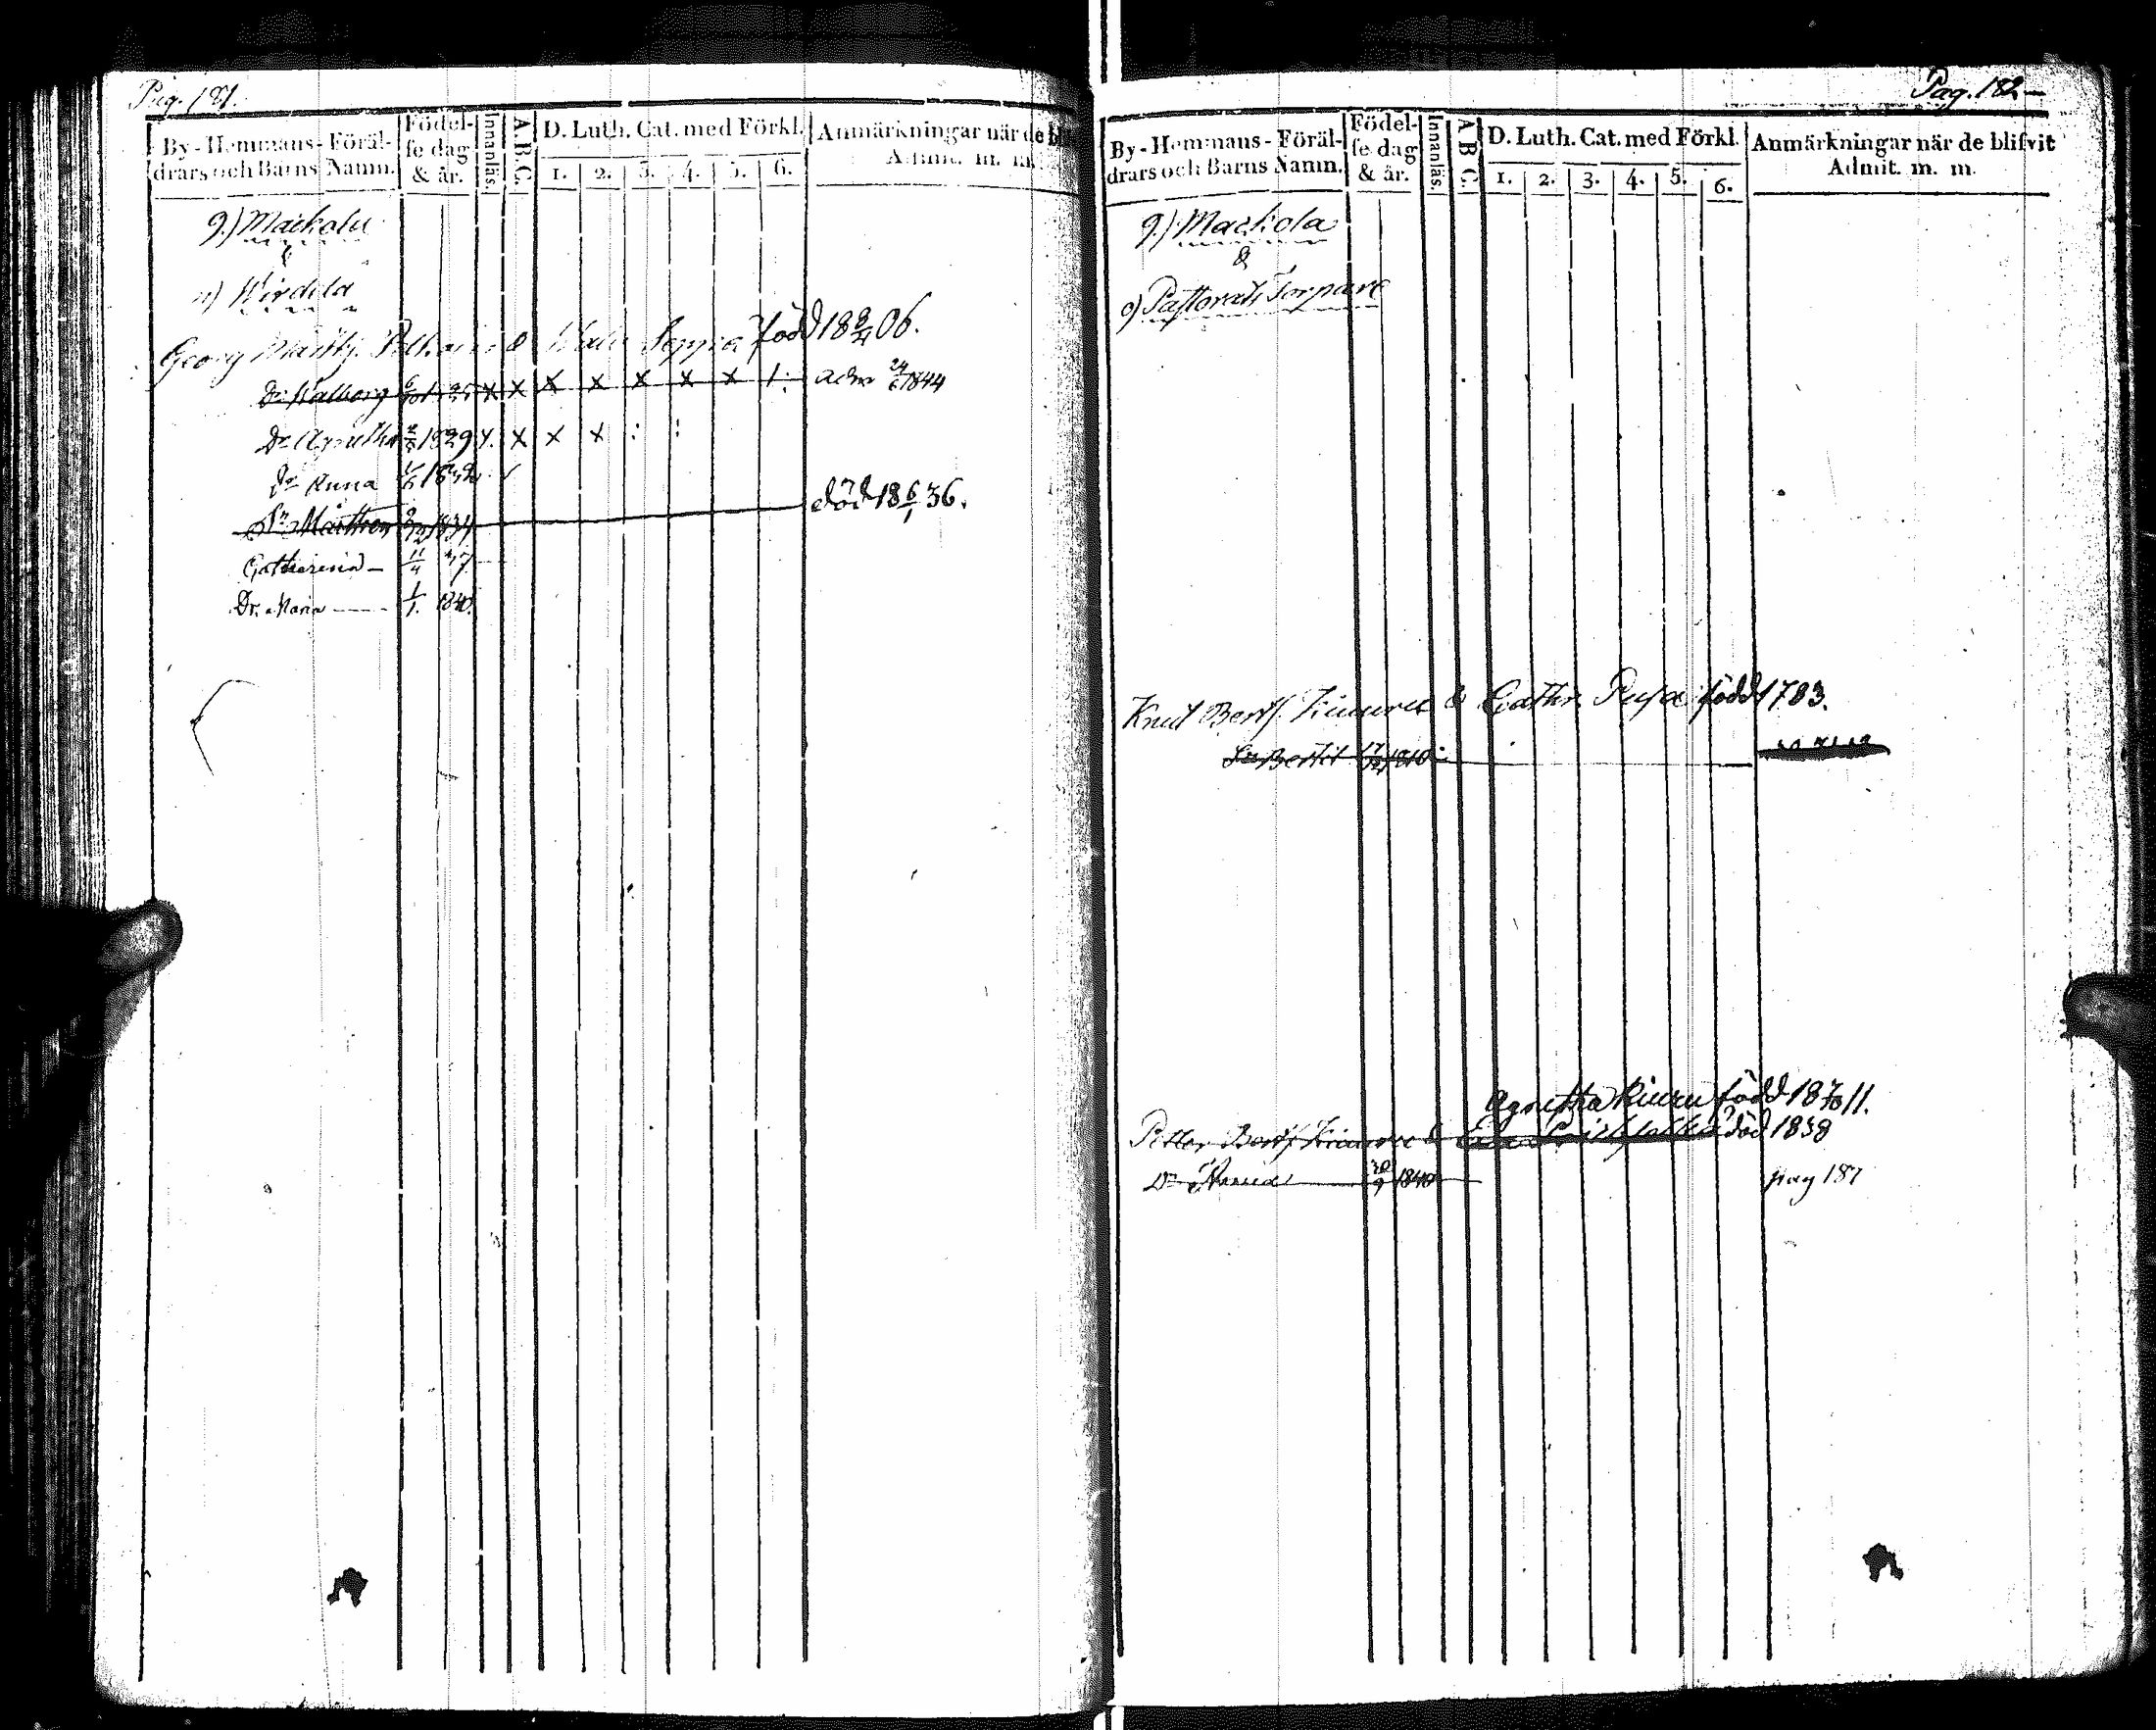 Pag. 181.
By-Hemmans-Föräl-
drars och Barns Namn.
Födel-
se dag
& år.
Innanläs.
A. B. C.
D. Luth. Cat. med Förkl.
1. 2. 3. 4. 5. 6.
Anmärkningar när de bli
Admit. m. m.
9.) Mackola
&
n) Wirdila
Georg & Seppä född 18 8/4 06.
Dr Walborg X X X X X X X 1: adm 24/6 1844
Dr Agnetha 1829 X X X : :
Dr Anna 1832
Sn Matthon 1834 död 18 6/1 36.
Catharina — 11/4 37
Dr. Maria — 1/1. 1840.
Pag. 182—
By-Hemmans-Föräl-
drars och Barns Namn.
Födel-
se dag
& år.
Innanläs.
A B C.
D. Luth. Cat. med Förkl.
1. 2. 3. 4. 5. 6.
Anmärkningar när de blifvit
Admit. m. m.
9.) Mackola
&
o) Pastorats Torpare
Knut Bertſ. Kiuuru & Cathr. Pusa född 1783.
Sn Bertil 1810
Agnetha Kiuru född 18 11.
Petter Bertſ. Kiuuru & Eva död 1838
Dr Anna 20/9 1840 pag 187